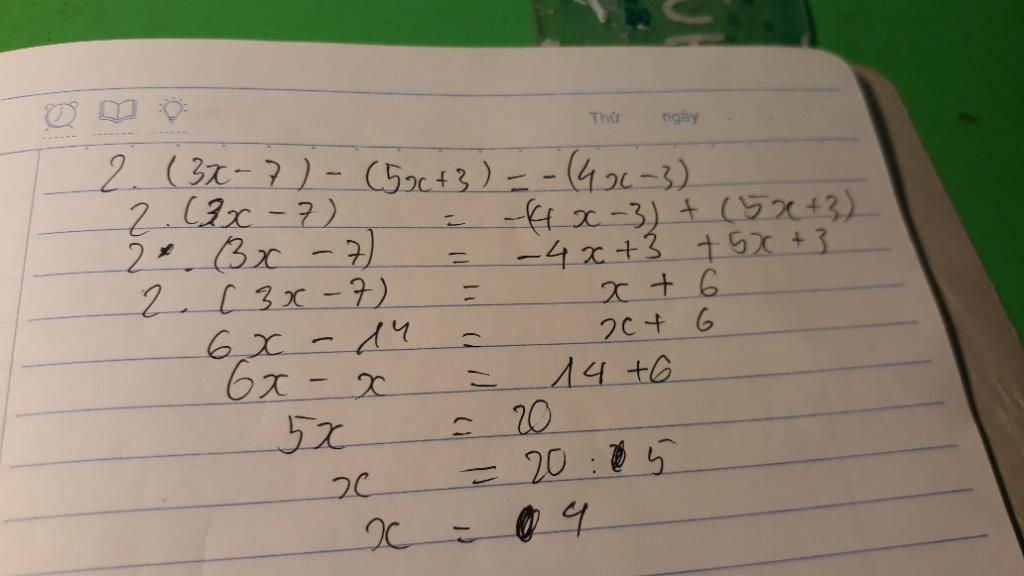 Thứ ngày
2. (3x - 7) - (5x+3) = -(4x-3)
2. (3x - 7) = -(4x-3) + (5x+3)
2 . (3x - 7) = -4x+3 +5x+3
2. (3x - 7) = x + 6
6x - 14 = x + 6
6x - x = 14 +6
5x = 20
x = 20 : 5
x = 4